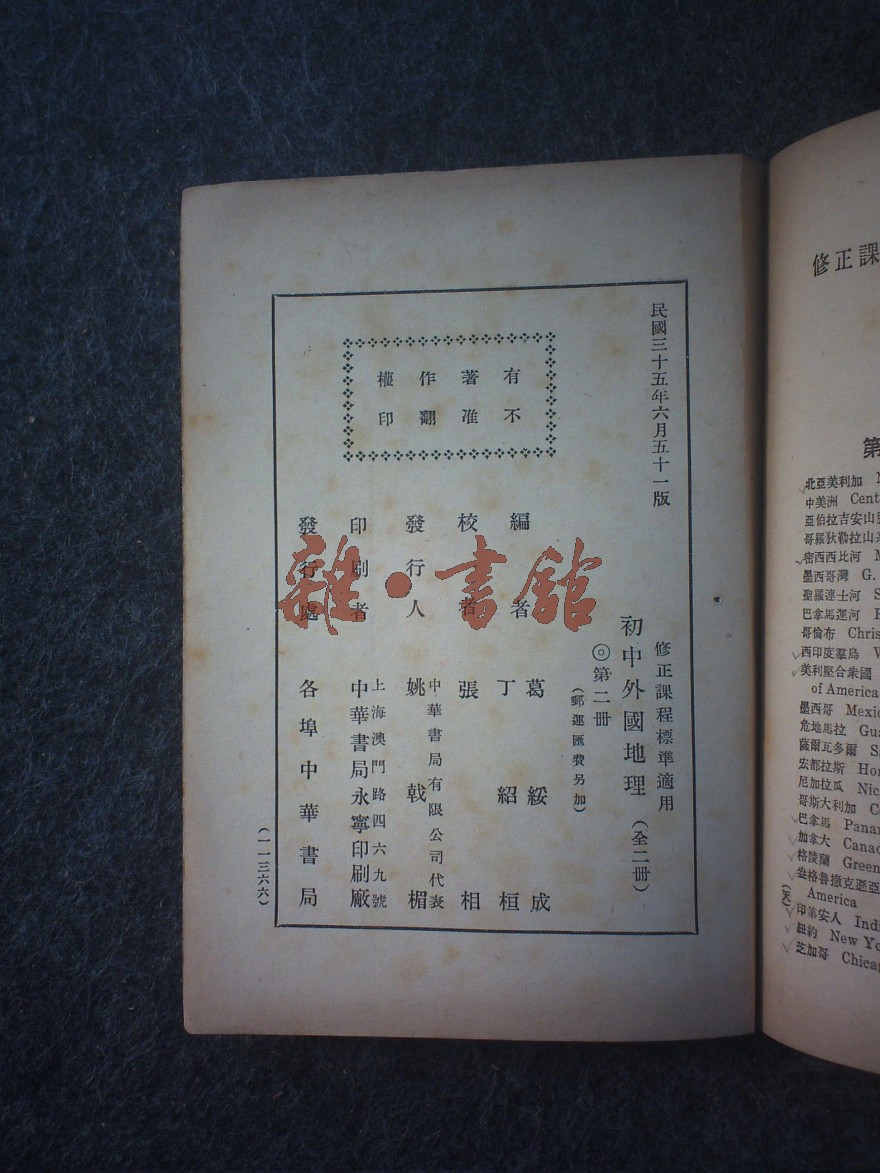 民國三十五年六月五十一版
有不
著准
作翻
權印
修正課程標準適用
初中外國地理（全二冊）
◎第二冊
（郵運匯費另加）
編者 葛綏成
丁紹桓
校者 張相
發行人 中華書局有限公司代表
姚戟楣
印刷者 上海澳門路四六九號
中華書局永寧印刷廠
發行處 各埠中華書局
（一一三六六）
雜·書館
修正課
第
北亞美利加 N
中美洲 Cent
亞伯拉吉安山
哥羅狄勒拉山
密西西比河 M
墨西哥灣 G.
聖羅連士河 S
巴拿馬運河 P
哥倫布 Chris
西印度羣島 W
美利堅合衆國
of America
墨西哥 Mexic
危地馬拉 Gua
薩爾瓦多爾 S
宏都拉斯 Hon
尼加拉瓜 Nic
哥斯大利加 C
巴拿馬 Panam
加拿大 Canad
格陵蘭 Green
盎格魯撒克遜亞
America
印第安人 Indi
紐約 New Yo
芝加哥 Chica